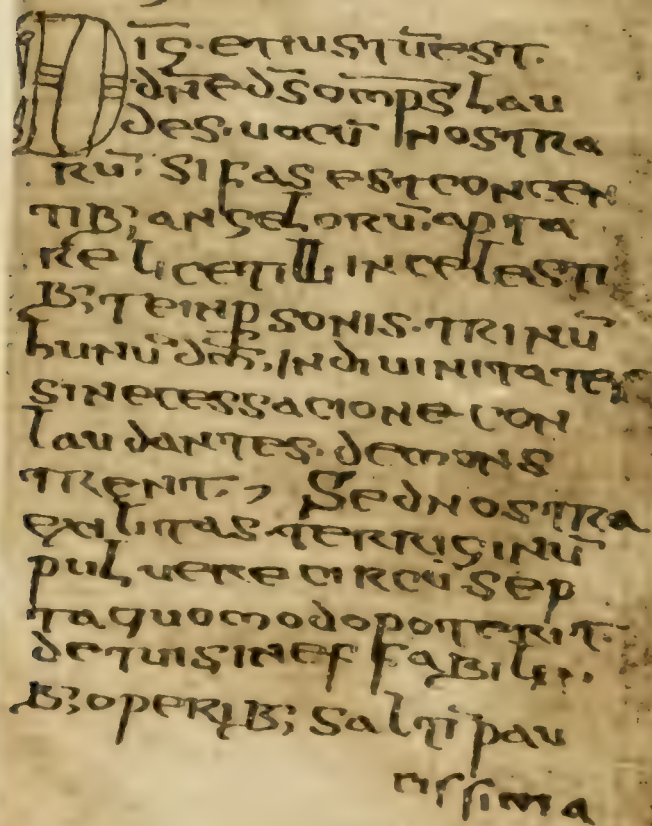 DIG·ETIUSTŪEST·
dn̄eds̄omp̄s lau
des·uocū nostra
rū· si fas est concen
tib; angelorū·apta
re licetilli incelesti
b; teinp̱sonis·trinū
hunū dm̄·indiuinitate
sinecessacione con
laudantes·demons
trent·, Sednostra
exilitas·terriginū
puluere circūsep
taquomodopoterit·
detuisineffabili
b; operib; saltī pau
cissima